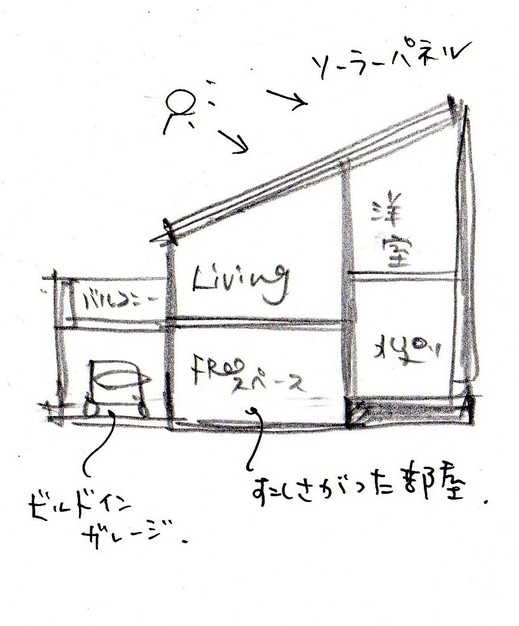 ソーラーパネル
洋
室
Living
バルコニー
FREE
スペース
すこしさがった部屋.
ビルドイン
ガレージ.